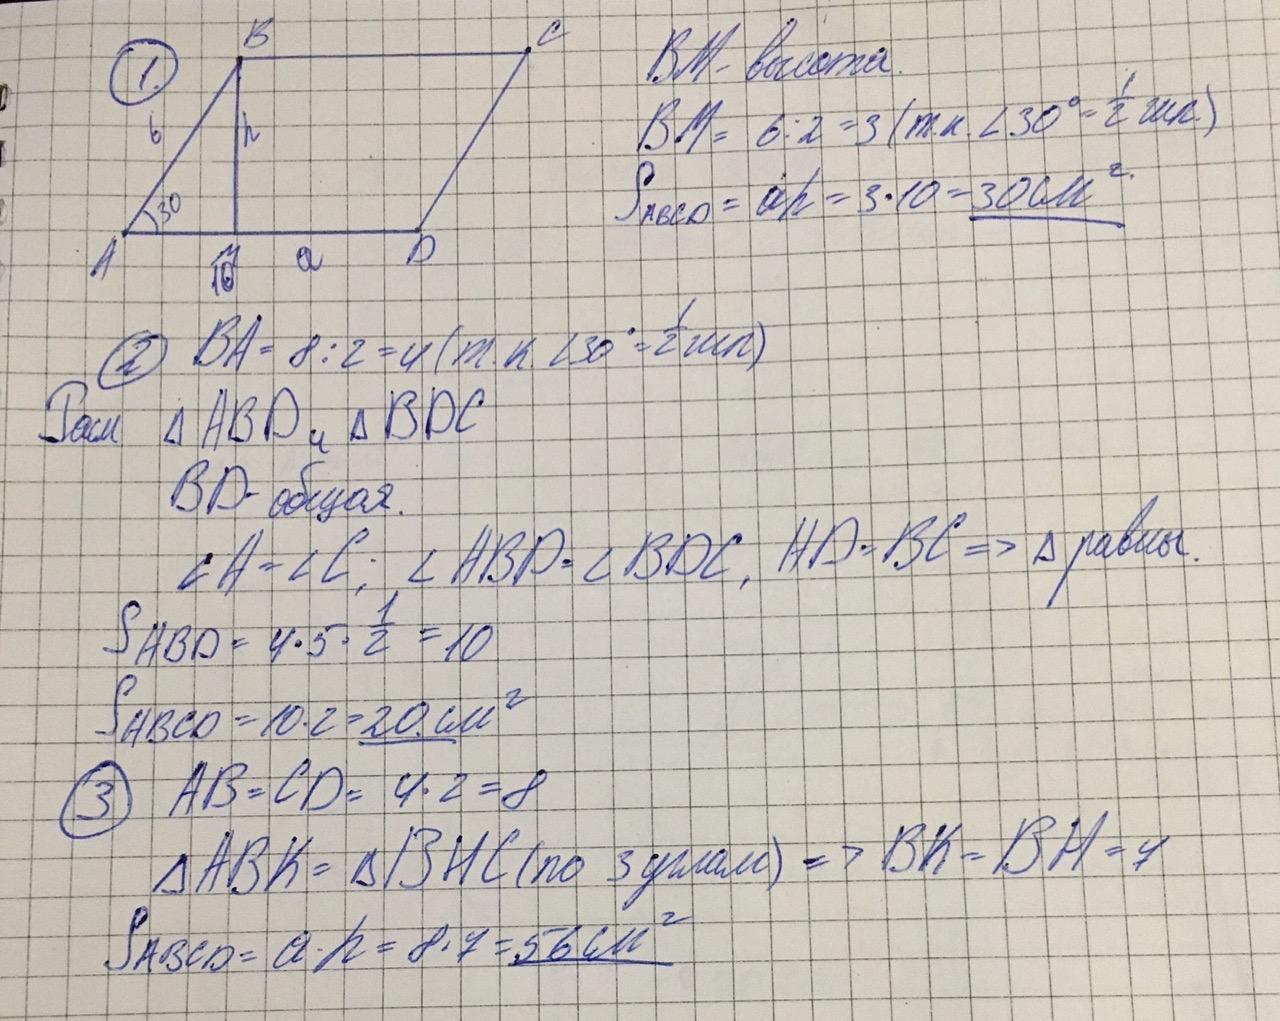 1.
B
C
6
h
30
A
M
10
a
D
BM - высота.
BM = 6:2 = 3 (т.к. ∠30° = 1/2 гип.)
S ABCD = ah = 3·10 = 30 см².
2 BA = 8:2 = 4 (т.к. ∠30° = 1/2 гип)
Расм △ABD и △BDC
BD - общая.
∠A = ∠C; ∠ABD = ∠BDC, AD = BC => △ равны.
S ABD = 4·5·1/2 = 10
S ABCD = 10·2 = 20 см²
3 AB = CD = 4·2 = 8
△ABK = △BHC (по 3 углам) => BK = BH = 7
S ABCD = a·h = 8·7 = 56 см²